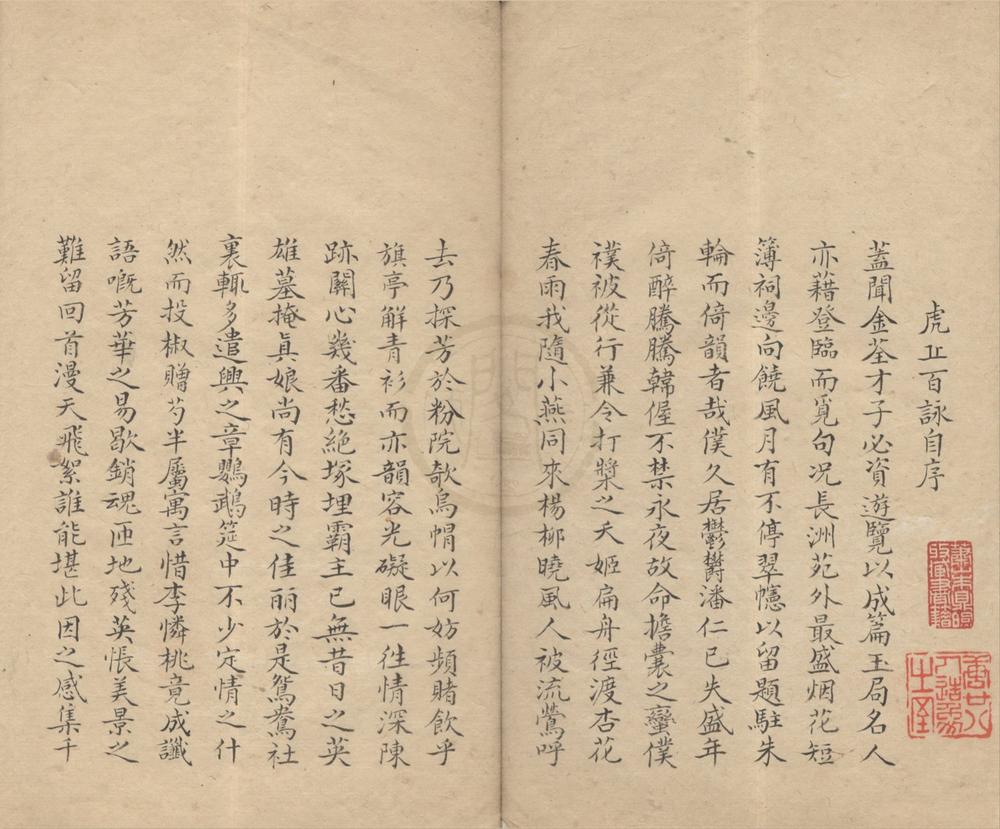 虎丘百詠自序
蓋聞金荃才子必資遊覽以成篇玉局名人
亦藉登臨而覓句况長洲苑外最盛烟花短
簿祠邊向饒風月有不停翠幰以留題駐朱
輪而倚韻者哉僕久居鬱鬱潘仁已失盛年
倚醉騰騰韓偓不禁永夜故命擔囊之蠻僕
襆被從行兼令打槳之夭姬扁舟徑渡杏花
春雨我隨小燕同來楊柳曉風人被流鶯呼
去乃探芳於粉院欹烏帽以何妨頻賭飲乎
旗亭解青衫而亦韻容光礙眼一徃情深陳
跡關心幾番愁絕塚埋霸主已無昔日之英
雄墓掩眞娘尚有今時之佳麗於是鴛鴦社
裏輒多遣興之章鸚鵡筵中不少定情之什
然而投椒贈芍半屬寓言惜李憐桃竟成讖
語嘅芳華之易歇銷魂匝地殘英悵美景之
難留回首漫天飛絮誰能堪此因之感集千